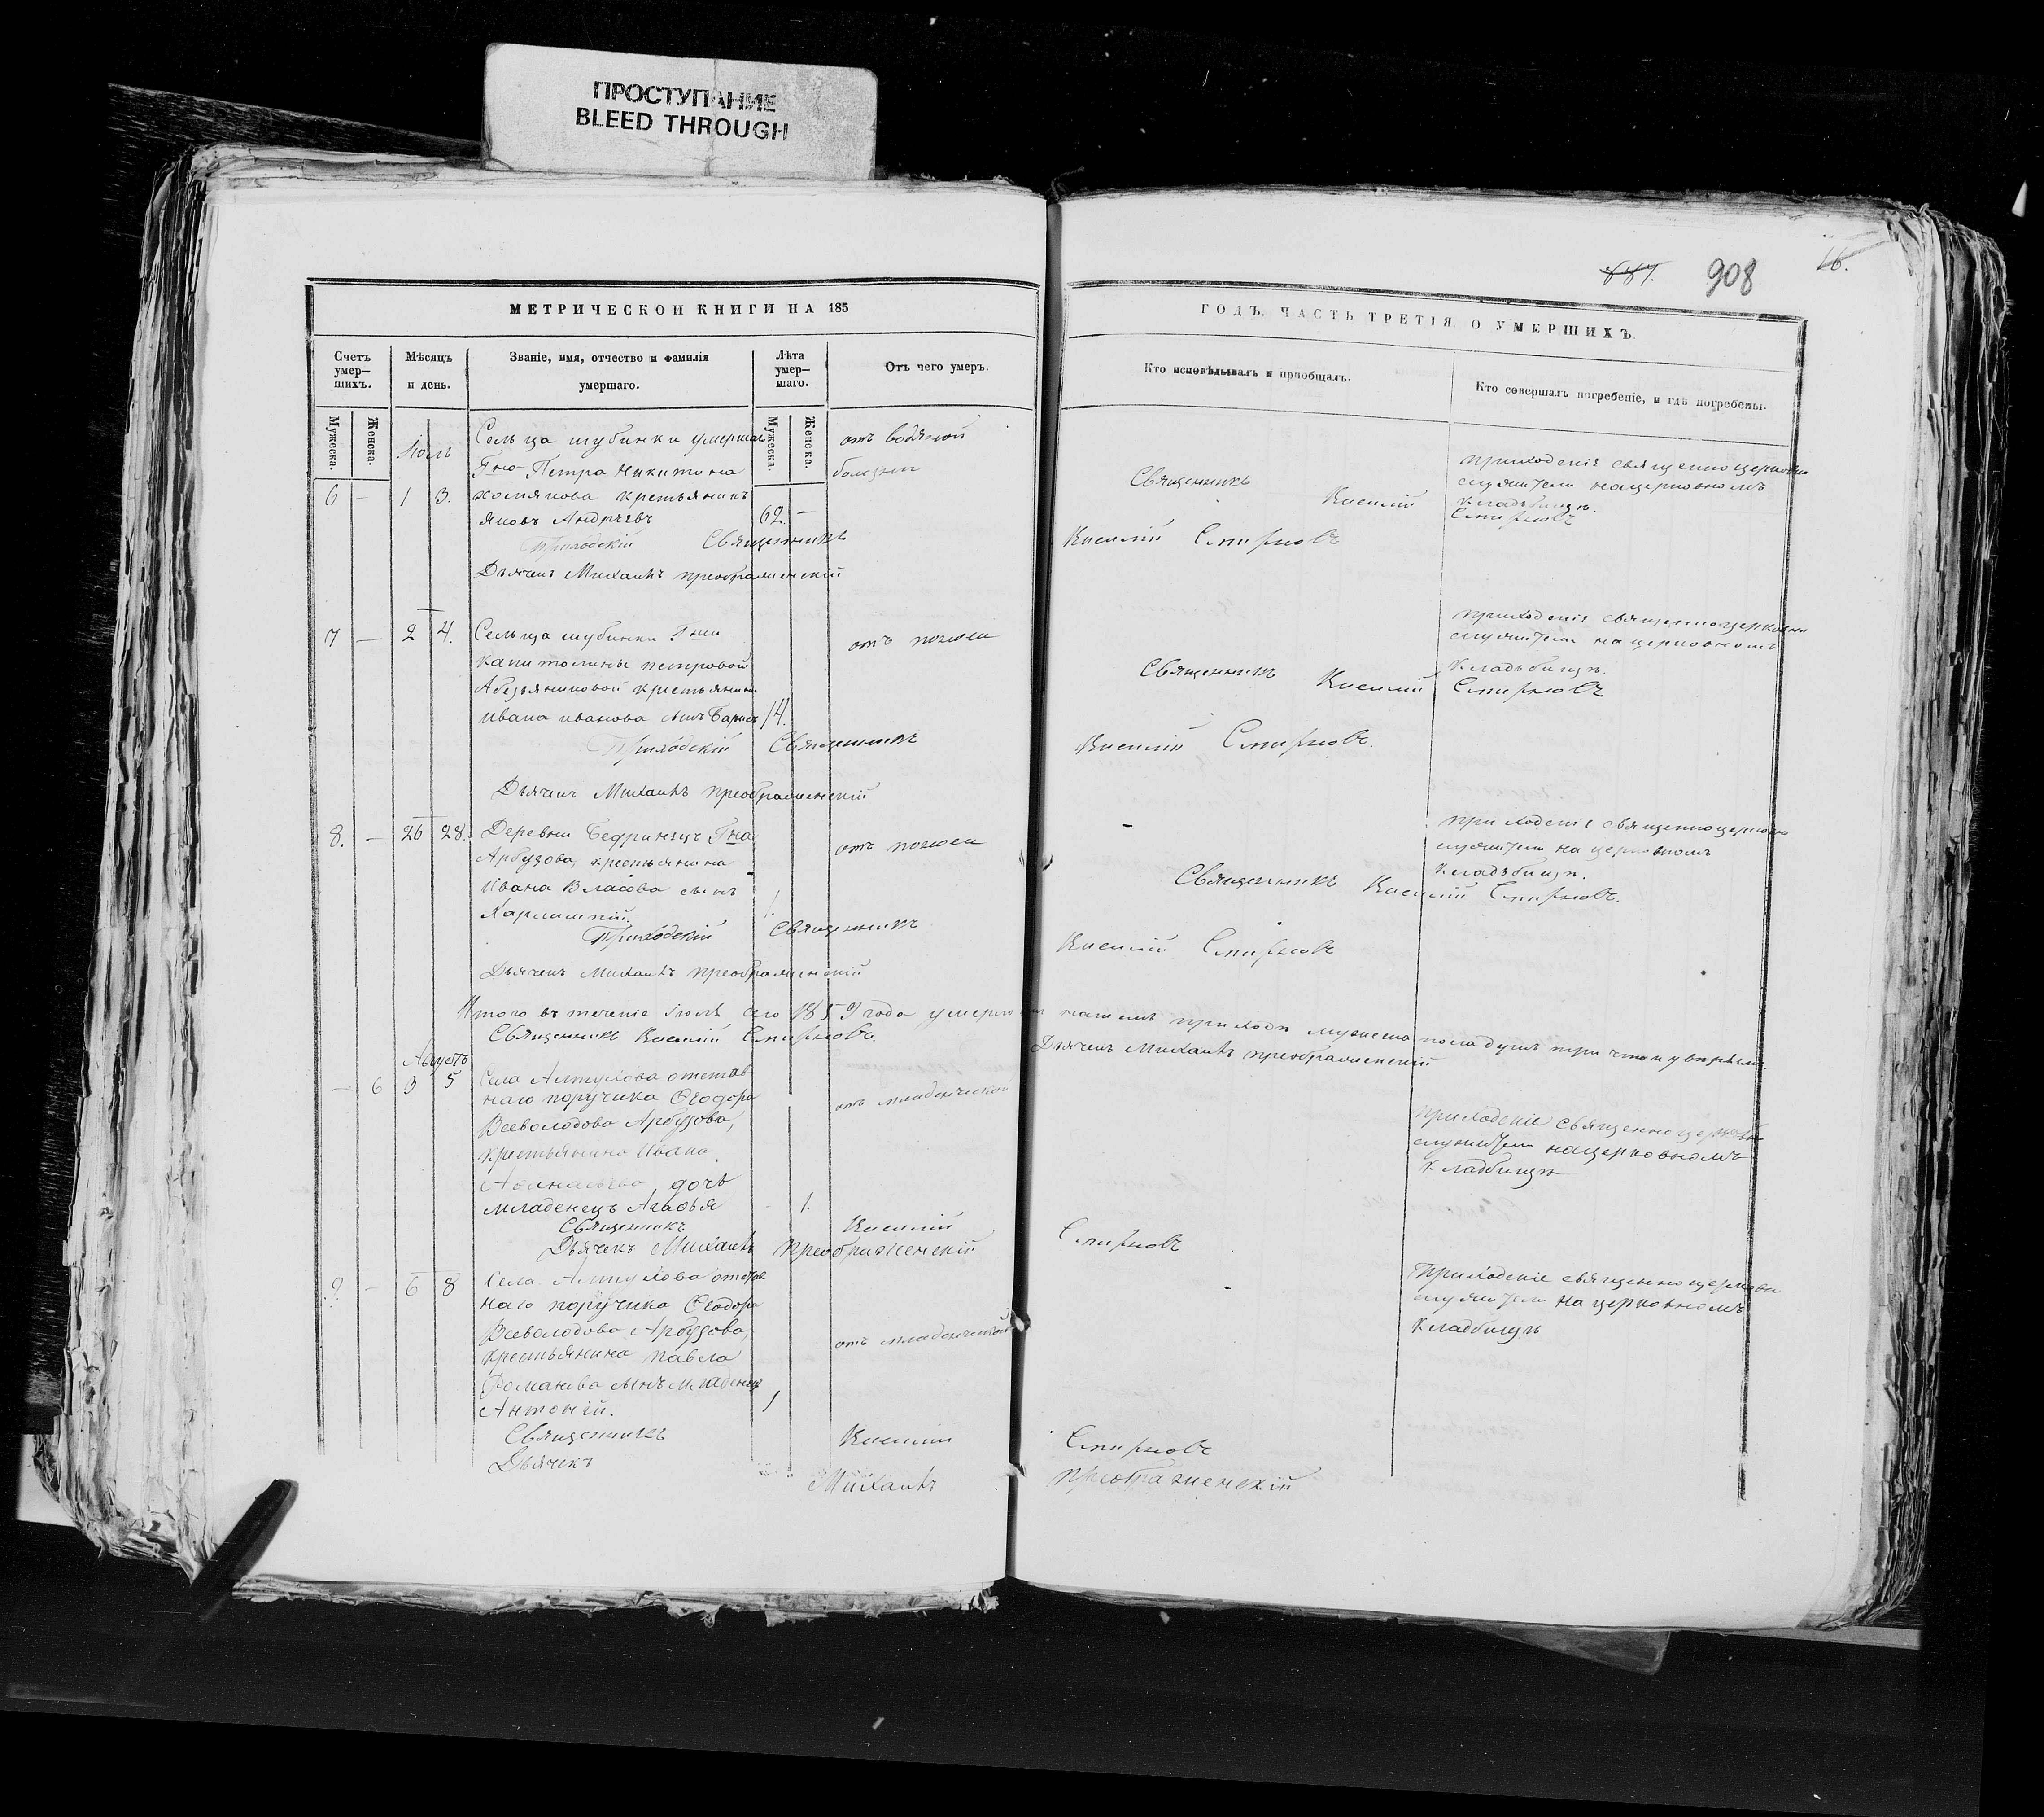 ПРОСТУПАНИЕ
BLEED THROUGH
887.
908
16.
МЕТРИЧЕСКОЙ КНИГИ НА 185
ГОДЪ. ЧАСТЬ ТРЕТІЯ. О УМЕРШИХЪ.
Счетъ умер—шихъ.
Мѣсяцъ и день.
Званіе, имя, отчество и фамилія умершаго.
Лѣта умер—шаго.
Отъ чего умеръ.
Кто исповѣдывалъ и пріобщалъ.
Кто совершалъ погребеніе, и гдѣ погребены.
Мужеска.
Женска.
Мужеска.
Женска.
Іюль
6 — 1 3.
Сельца шубинки умершаго
Гна Петра Никитина
хомякова крестьянинъ
яковъ Андреевъ
62. —
отъ водяной
болѣзни
Священникъ Василій
приходскія священноцерковно
служители на церковномъ
кладбищѣ.
Смирновъ
Приходскій Священникъ Василій Смирновъ
Дьячекъ Михаилъ преображенскій
7 — 2 4.
Сельца шубинки Гжи
капитолины петровой
крестьянина
ивана иванова сынъ
14.
отъ поноса
Священникъ Василій Смирновъ
приходскія священноцерковно
служители на церковномъ
кладбищѣ.
Приходскій Священникъ Василій Смирновъ.
Дьячекъ Михаилъ преображенскій
8. — 26 28.
Деревни Бедринецъ Гна
Арбузова, крестьянина
Ивана Власова сынъ
1.
отъ поноса
Священникъ Василій Смирновъ.
приходскія священноцерковно
служители на церковномъ
кладбищѣ.
Приходскій Священникъ Василій Смирновъ
Дьячекъ Михаилъ преображенскій
Итого въ теченіе іюля сего 1859 года умерло въ нашемъ приходѣ мужеска пола душъ три что и увѣряемъ.
Священникъ Василій Смирновъ.
Дьячекъ Михаилъ преображенскій
Августъ
— 6 3 5
Села Алтухова отстав
наго поручика Ѳеодора
Всеволодова Арбузова,
крестьянина Ивана
Аѳанасьева дочь
младенецъ Агаѳья
1.
отъ младенческой
приходскіе священноцерковно
служители на церковномъ
кладбищѣ
Священникъ Василій Смирновъ
Дьячекъ Михаилъ преображенскій
9. — 6 8
Села Алтухова отстав
наго поручика Ѳеодора
Всеволодова Арбузова,
крестьянина павла
Романова сынъ младенецъ
Антоній.
1
отъ младенческой
приходскіе священноцерковно
служители на церковномъ
кладбищѣ
Священникъ Василій Смирновъ
Дьячекъ Михаилъ преображенскій